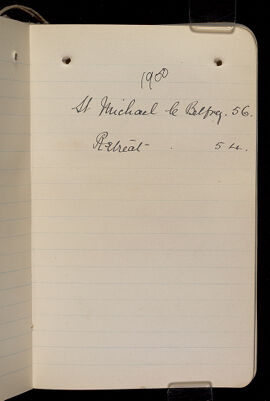 1900
St Michael le Belfrey. 56.
Retreat . 54.